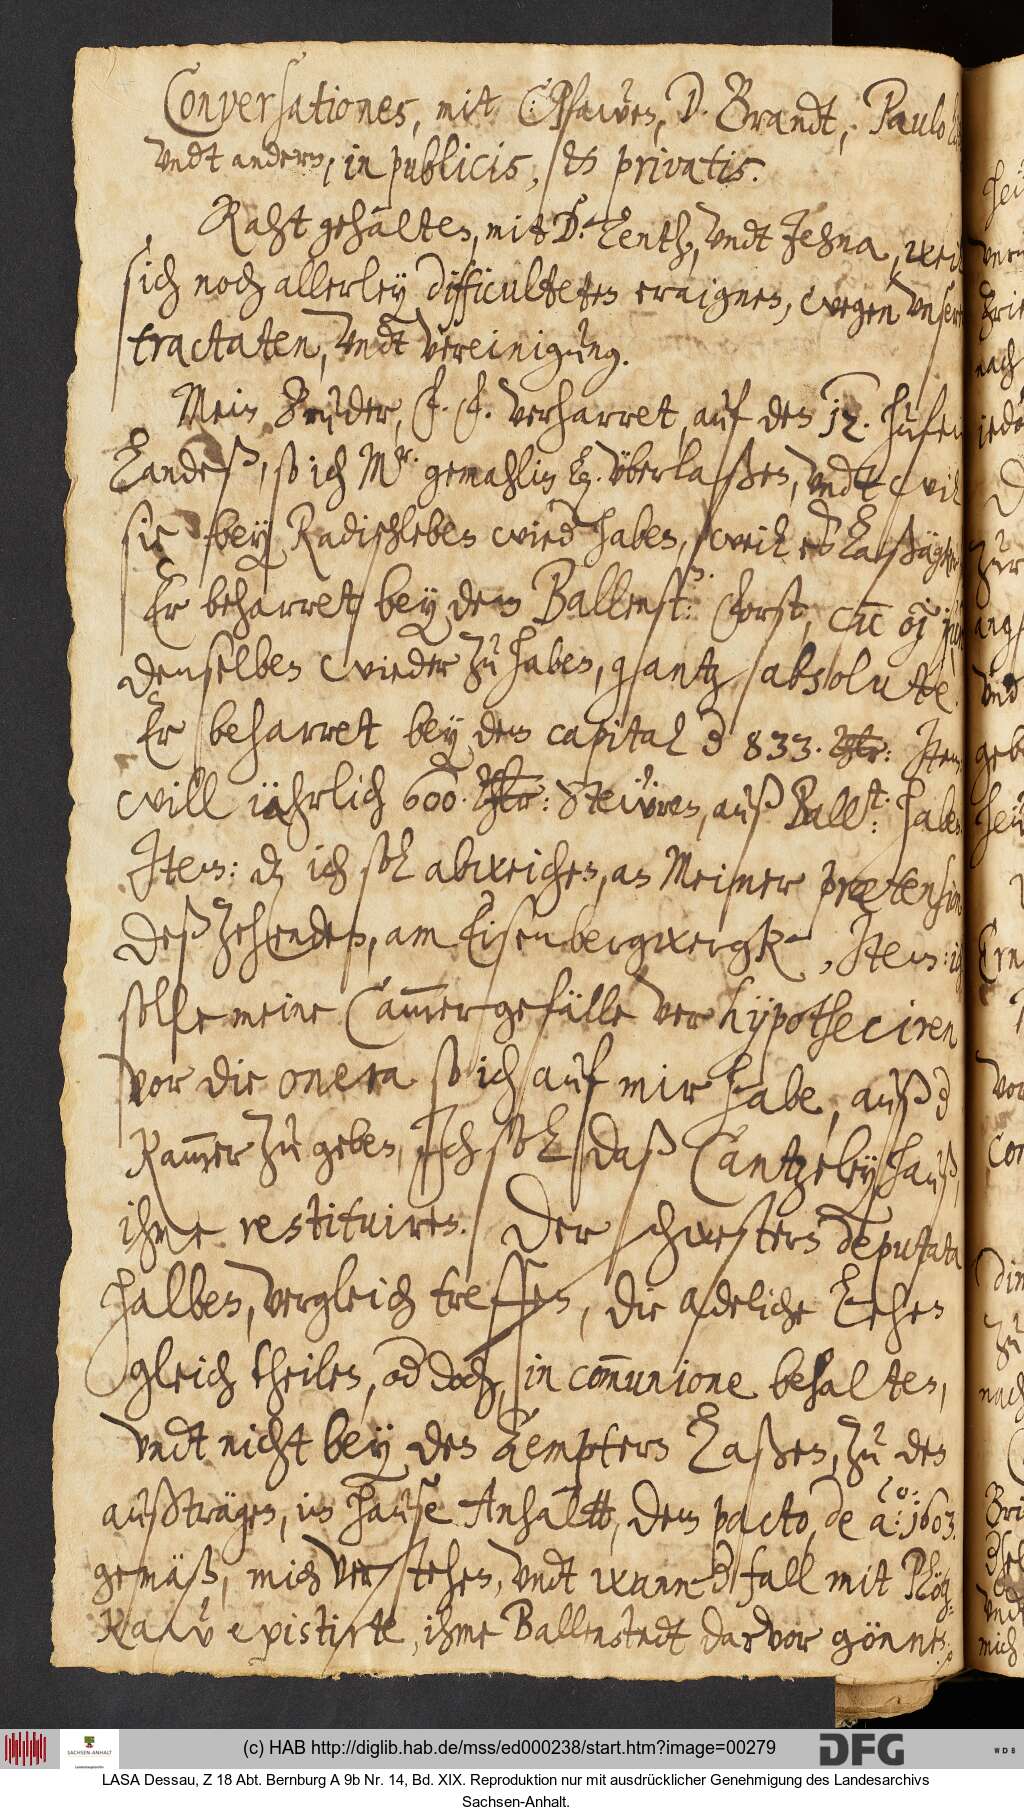 Conversationes, mit C: Pfawen, D. Brandt, Paulo
undt andern, in publicis, et privatis.
Raht gehalten, mit D. Lenth, undt Jehna, weil
sich noch allerley difficulteten eraignen, wegen unserer
tractaten, undt vereinigung.
Mein Bruder, F. F. verharret, auf den 12. hufen
Landeß, so ich Mr. gemahlin überlaßen, undt wil
sie bey Radischleben wied haben, weil es
Er beharret bey dem Ballenst: Forst,
denselben wieder zu haben, gantz absolute.
Er beharret bey dem capital d 833. Thlr: Item:
will iährlich 600. Thlr: Steüren, auß Ballst: haben
Item: dz ich sol abweichen, an Meiner praetension
deß Zehenden, am Eisenbergwergk, Item: ich
solle meine Cammergefälle verhypotheciren
vor die onera so ich auf mir habe, auß d
Kammer zu geben, Ich sol daß Cantzeleyhauß,
ihme restituiren. Der schwestern deputata
halben, vergleich treffen, die adeliche Lehen
gleich theilen, od doch, in communione behalten,
undt nicht bey den Aemptern Laßen, zu den
außträgen, im hause Anhaltt, dem pacto, de ao: 1603.
gemäß, mich verstehen, undt wann d fall mit Plötz
kaw existirte, ihme Ballenstedt darvor gönnen
(c) HAB http://diglib.hab.de/mss/ed000238/start.htm?image=00279
DFG
WDB
SACHSEN-ANHALT
LASA Dessau, Z 18 Abt. Bernburg A 9b Nr. 14, Bd. XIX. Reproduktion nur mit ausdrücklicher Genehmigung des Landesarchivs
Sachsen-Anhalt.